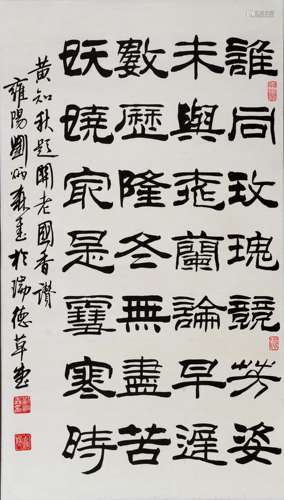 誰同玫瑰競芳姿
未與蘭論早遲
數歷隆冬無盡苦
既曉是寒時
黃知秋題關老國香讚
雍陽劉炳森書於瑞德草堂